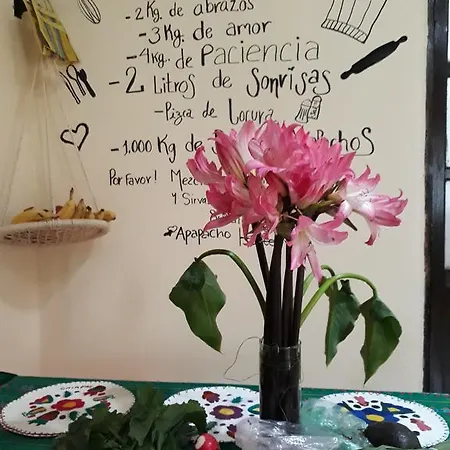 -2 Kg. de abrazos
-3 Kg. de amor
-4 Kg.. de Paciencia
-2 Litros de Sonrisas
-Pizca de Locura
-1.000 Kg de
Por Favor! Mezc
y Sirva
Apapacho